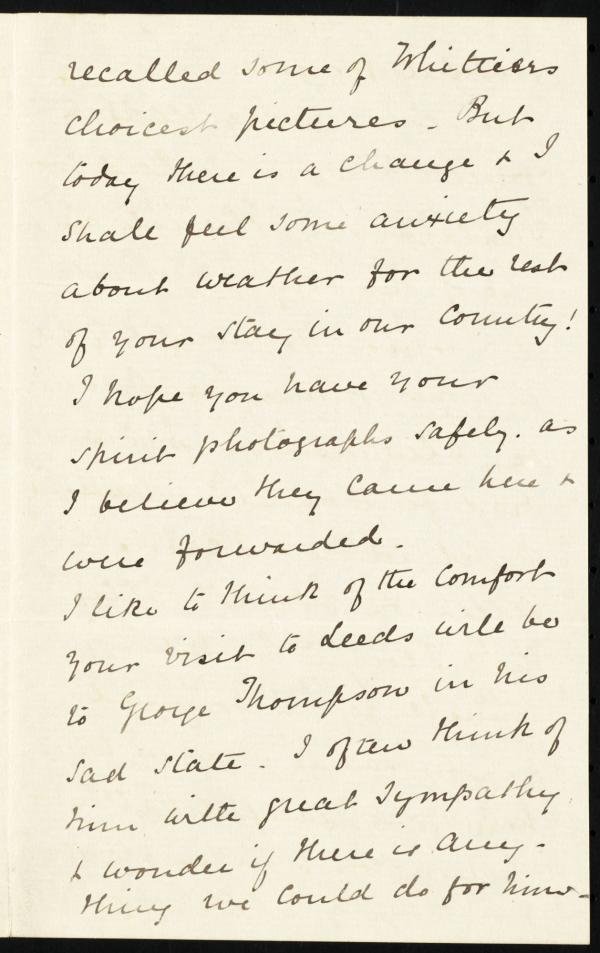 recalled some of Whittiers
choicest pictures - But
today there is a change & I
shall feel some anxiety
about weather for the rest
of your stay in our Country!
I hope you have your
spirit photographs safely. as
I believe they came here &
were forwarded.
I like to think of the comfort
your visit to Leeds will be
to George Thompson in his
sad state. I often think of
him with great sympathy
& wonder if there is any-
thing we could do for him -